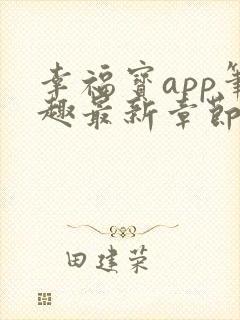 幸福宝app笔
趣最新章节
田建荣